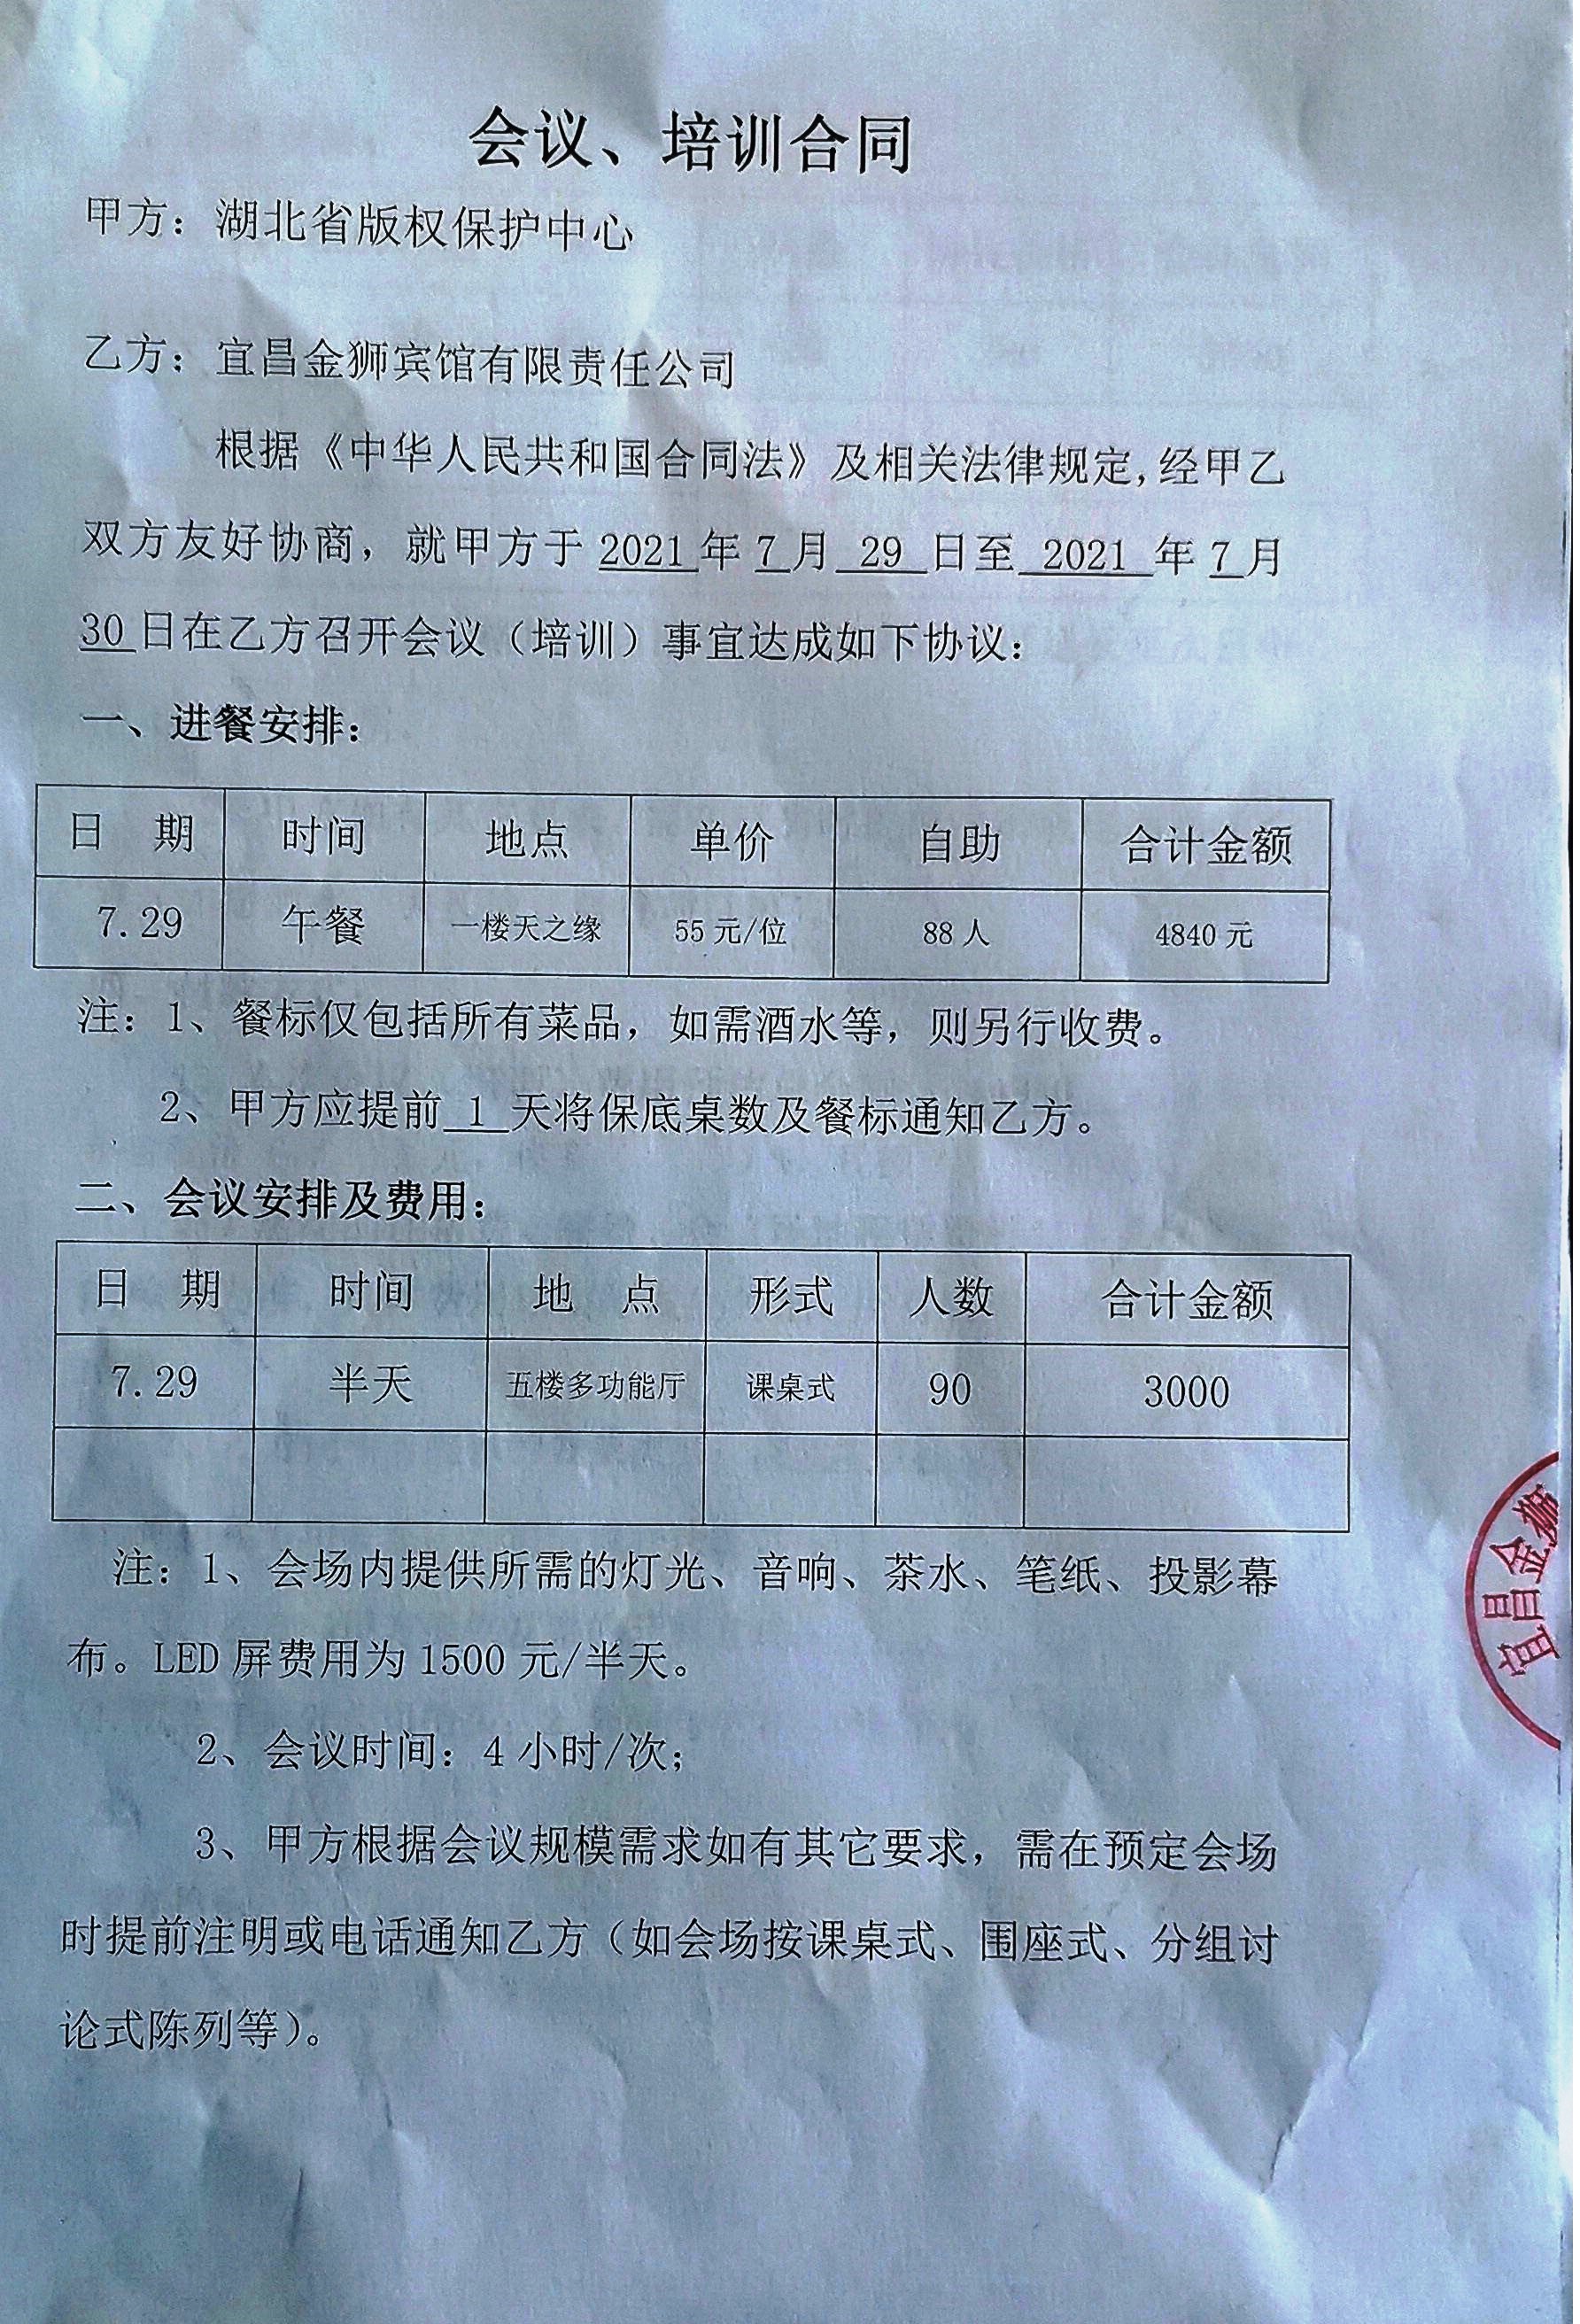 会议、培训合同
甲方：湖北省版权保护中心
乙方：宜昌金狮宾馆有限责任公司
根据《中华人民共和国合同法》及相关法律规定,经甲乙
双方友好协商，就甲方于 2021 年 7 月 29 日至 2021 年 7 月
30 日在乙方召开会议（培训）事宜达成如下协议：
一、进餐安排：
日 期 时间 地点 单价 自助 合计金额
7.29 午餐 一楼天之缘 55 元/位 88 人 4840 元
注：1、餐标仅包括所有菜品，如需酒水等，则另行收费。
2、甲方应提前 1 天将保底桌数及餐标通知乙方。
二、会议安排及费用：
日 期 时间 地 点 形式 人数 合计金额
7.29 半天 五楼多功能厅 课桌式 90 3000
注：1、会场内提供所需的灯光、音响、茶水、笔纸、投影幕
布。LED 屏费用为 1500 元/半天。
2、会议时间：4 小时/次；
3、甲方根据会议规模需求如有其它要求，需在预定会场
时提前注明或电话通知乙方（如会场按课桌式、围座式、分组讨
论式陈列等）。
宜昌金狮